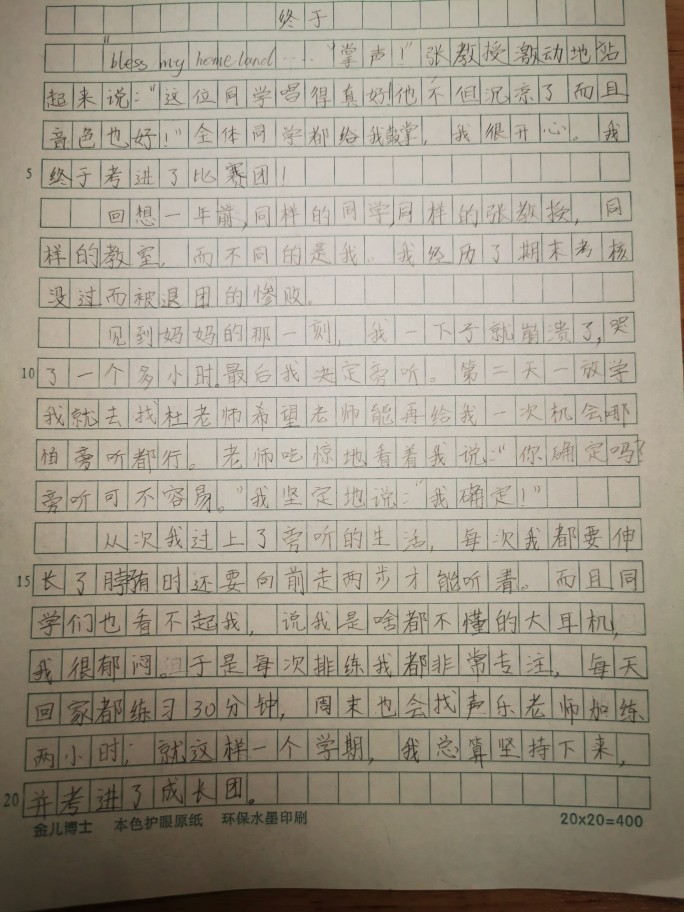 终于
"bless my homeland……"掌声!"张教授激动地站
起来说:"这位同学唱得真好!他不但沉凉了而且
音色也好!"全体同学都给我鼓掌,我很开心。我
5 终于考进了比赛团!
回想一年前,同样的同学,同样的张教授,同
样的教室,而不同的是我。我经历了期末考核
没过而被退团的惨败。
见到妈妈的那一刻,我一下子就崩溃了,哭
10 了一个多小时。最后我决定旁听。第二天一放学
我就去找杜老师希望老师能再给我一次机会哪
怕旁听都行。老师吃惊地看着我说:"你确定吗?
旁听可不容易。"我坚定地说:"我确定!"
从次我过上了旁听的生活,每次我都要伸
15 长了脖有时还要向前走两步才能听着。而且同
学们也看不起我,说我是啥都不懂的大耳机,
我很郁闷。于是每次排练我都非常专注,每天
回家都练习30分钟,周末也会找声乐老师加练
两小时;就这样一个学期,我总算坚持下来,
20 并考进了成长团。
金儿博士 本色护眼原纸 环保水墨印刷 20×20=400